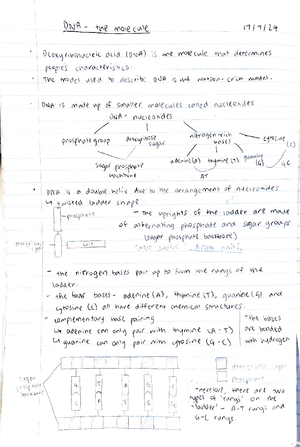 DNA - the molecule
17/7/24
• Deoxyribonucleic acid (DNA) is the molecule that determines
peoples characteristics.
• The model used to describe DNA is the Watson-Crick model.
• DNA is made up of smaller molecules called nucleotides
DNA - nucleotides
phosphate group
deoxyribose sugar
nitrogen-rich bases
sugar phosphate backbone
adenine (A)
thymine (T)
guanine (G)
cytosine (C)
AT
GC
• DNA is a double helix due to the arrangement of nucleotides
↳ twisted ladder shape
phosphate
base
- the uprights of the ladder are made
of alternating phosphate and sugar groups
(sugar phosphate backbone)
- the nitrogen bases pair up to form the rungs of the
ladder.
- the four bases - adenine (A), thymine (T), guanine (G) and
cytosine (C) all have different chemical structures.
- complementary base pairing
↳ adenine can only pair with thymine (A-T)
↳ guanine can only pair with cytosine (G-C)
*the bases
are bonded
with hydrogen
sugar
phosphate
backbone
phosphate
there are two
types of 'rungs' on the
'ladder' - A-T rungs and
G-C rungs.